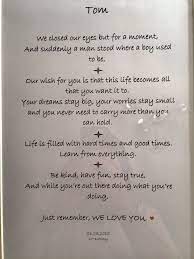 Tom
We closed our eyes but for a moment,
And suddenly a man stood where a boy used
to be.
Our wish for you is that this life becomes all
that you want it to.
Your dreams stay big, your worries stay small
and you never need to carry more than you
can hold.
Life is filled with hard times and good times.
Learn from everything.
Be kind, have fun, stay true.
And while you're out there doing what you're
doing.
Just remember, WE LOVE YOU.